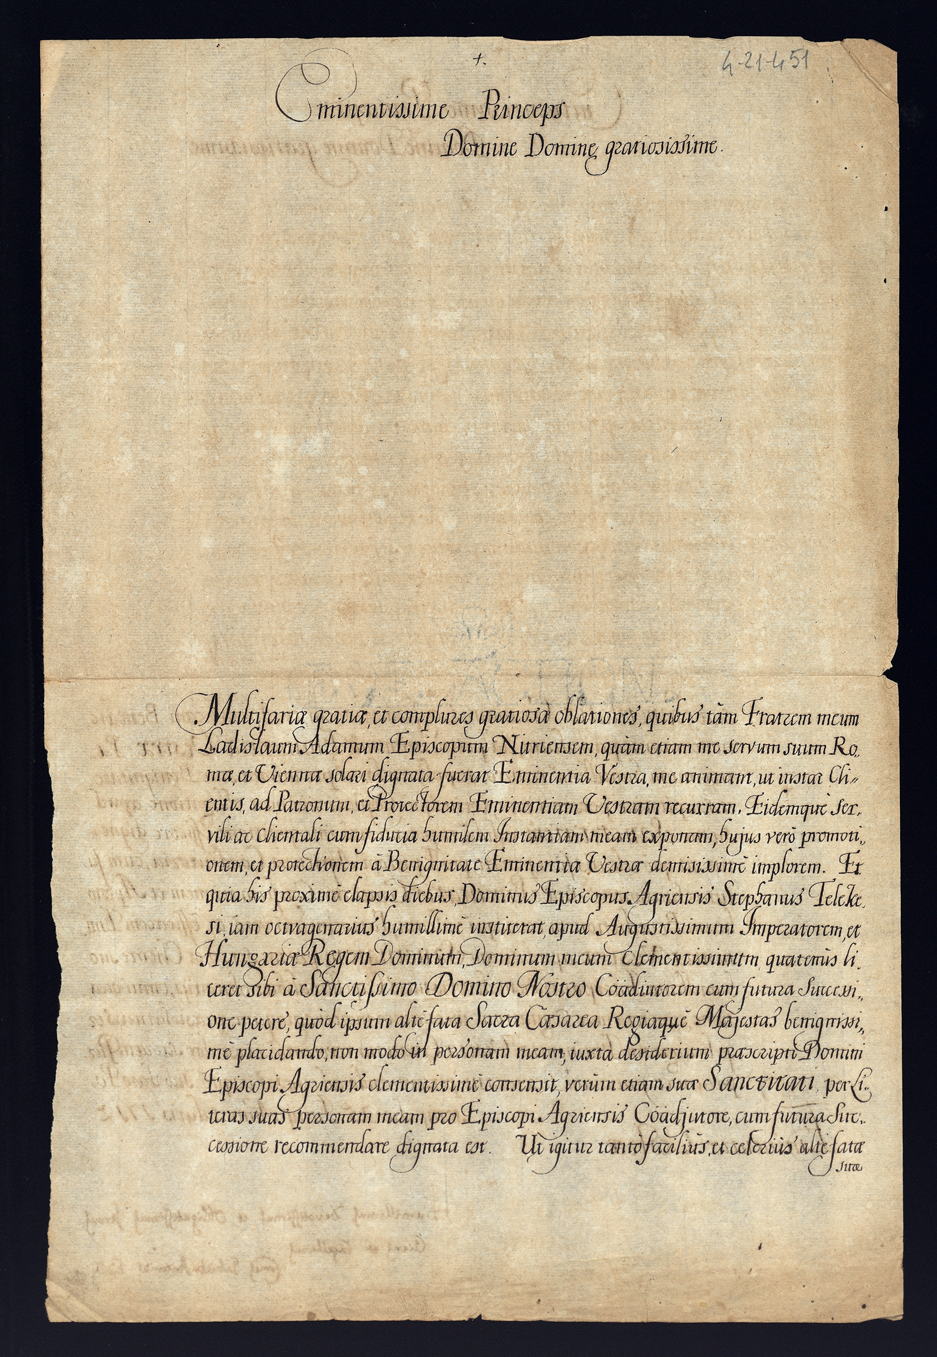 +.
4-21-451
Eminentissime Princeps
Domine Domine gratiosissime.
Multifariæ gratiæ, et complures gratiosæ oblationes, quibus tàm Fratrem meum
Ladislaum Adamum Episcopum Nitriensem, quàm etiam me servum suum Ro„
mæ, et Viennæ solari dignata fuerat Eminentia Vestra, me animant, ut instar Cli„
entis, ad Patronum, et Protectorem Eminentiam Vestram recurram. Eidemquè ser„
vili ac clientali cum fiducia humilem Instantiam meam exponam, hujus verò promoti„
onem, et protectionem à Benignitate Eminentiæ Vestræ demisissimè implorem. Et
quia his proximè elapsis diebus, Dominus Episcopus Agriensis Stephanus Teleke„
si, iam octuagenarius humillimè institerat, apud Augustissimum Imperatorem, et
Hungariæ Regem Dominum, Dominum meum Clementissimum quatenùs li„
ceret sibi à Sanctissimo Domino Nostro Coadiutorem cum futura Successi„
one petere, quòd ipsum altè fata Sacra Cæsarea Regiaquè Majestas benignissi„
mè placidando, non modo in personam meam, iuxta desiderium præscripti Domini
Episcopi Agriensis clementissimè consensit, verùm etiam suæ Sanctitati, per Li„
teras suas personam meam pro Episcopi Agriensis Coadjutore, cum futura Suc„
cessione recommendare dignata est. Ut igitur tantò facilius, et celerius altè fatæ
suæ